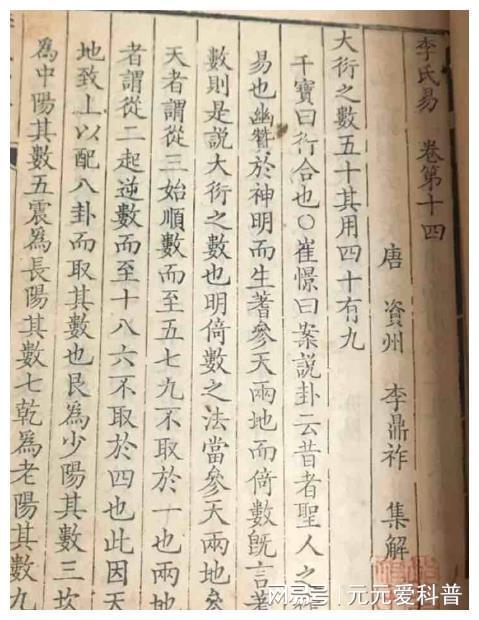 李氏易 卷第十四
唐 資州 李鼎祚 集解
大衍之數五十其用四十有九
干寶曰衍合也〇崔憬曰案説卦云昔者聖人之作
易也幽贊於神明而生蓍參天兩地而倚數既言蓍
數則是説大衍之數也明倚數之法當參天兩地參
天者謂從三始順數而至五七九不取於一也兩地
者謂從二起逆數而至十八六不取於四也此因天
地致上以配八卦而取其數也艮為少陽其數三坎
為中陽其數五震為長陽其數七乾為老陽其數九
网易号 | 元元爱科普